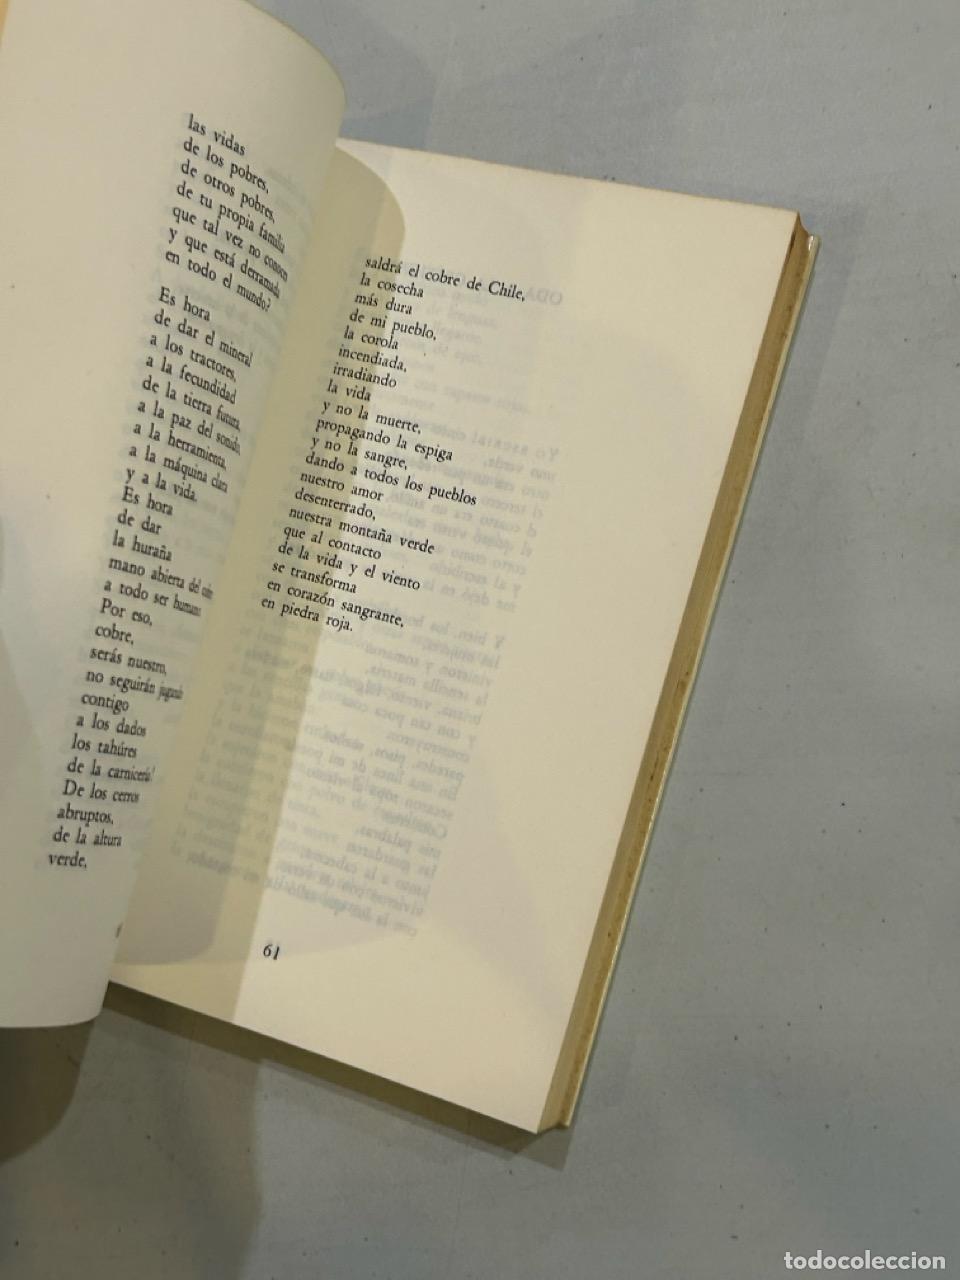 las vidas
de los pobres,
de otros pobres,
de tu propia familia
que tal vez no conocen
y que está derramada
en todo el mundo?
Es hora
de dar el mineral
a los tractores,
a la fecundidad
de la tierra futura,
a la paz del sonido,
a la herramienta,
a la máquina clara
y a la vida.
Es hora
de dar
la huraña
mano abierta del cobre
a todo ser humano.
Por eso,
cobre,
serás nuestro,
no seguirán jugando
contigo
a los dados
los tahúres
de la carnicería!
De los cerros
abruptos,
de la altura
verde,
saldrá el cobre de Chile,
la cosecha
más dura
de mi pueblo,
la corola
incendiada,
irradiando
la vida
y no la muerte,
propagando la espiga
y no la sangre,
dando a todos los pueblos
nuestro amor
desenterrado,
nuestra montaña verde
que al contacto
de la vida y el viento
se transforma
en corazón sangrante,
en piedra roja.
61
todocoleccion